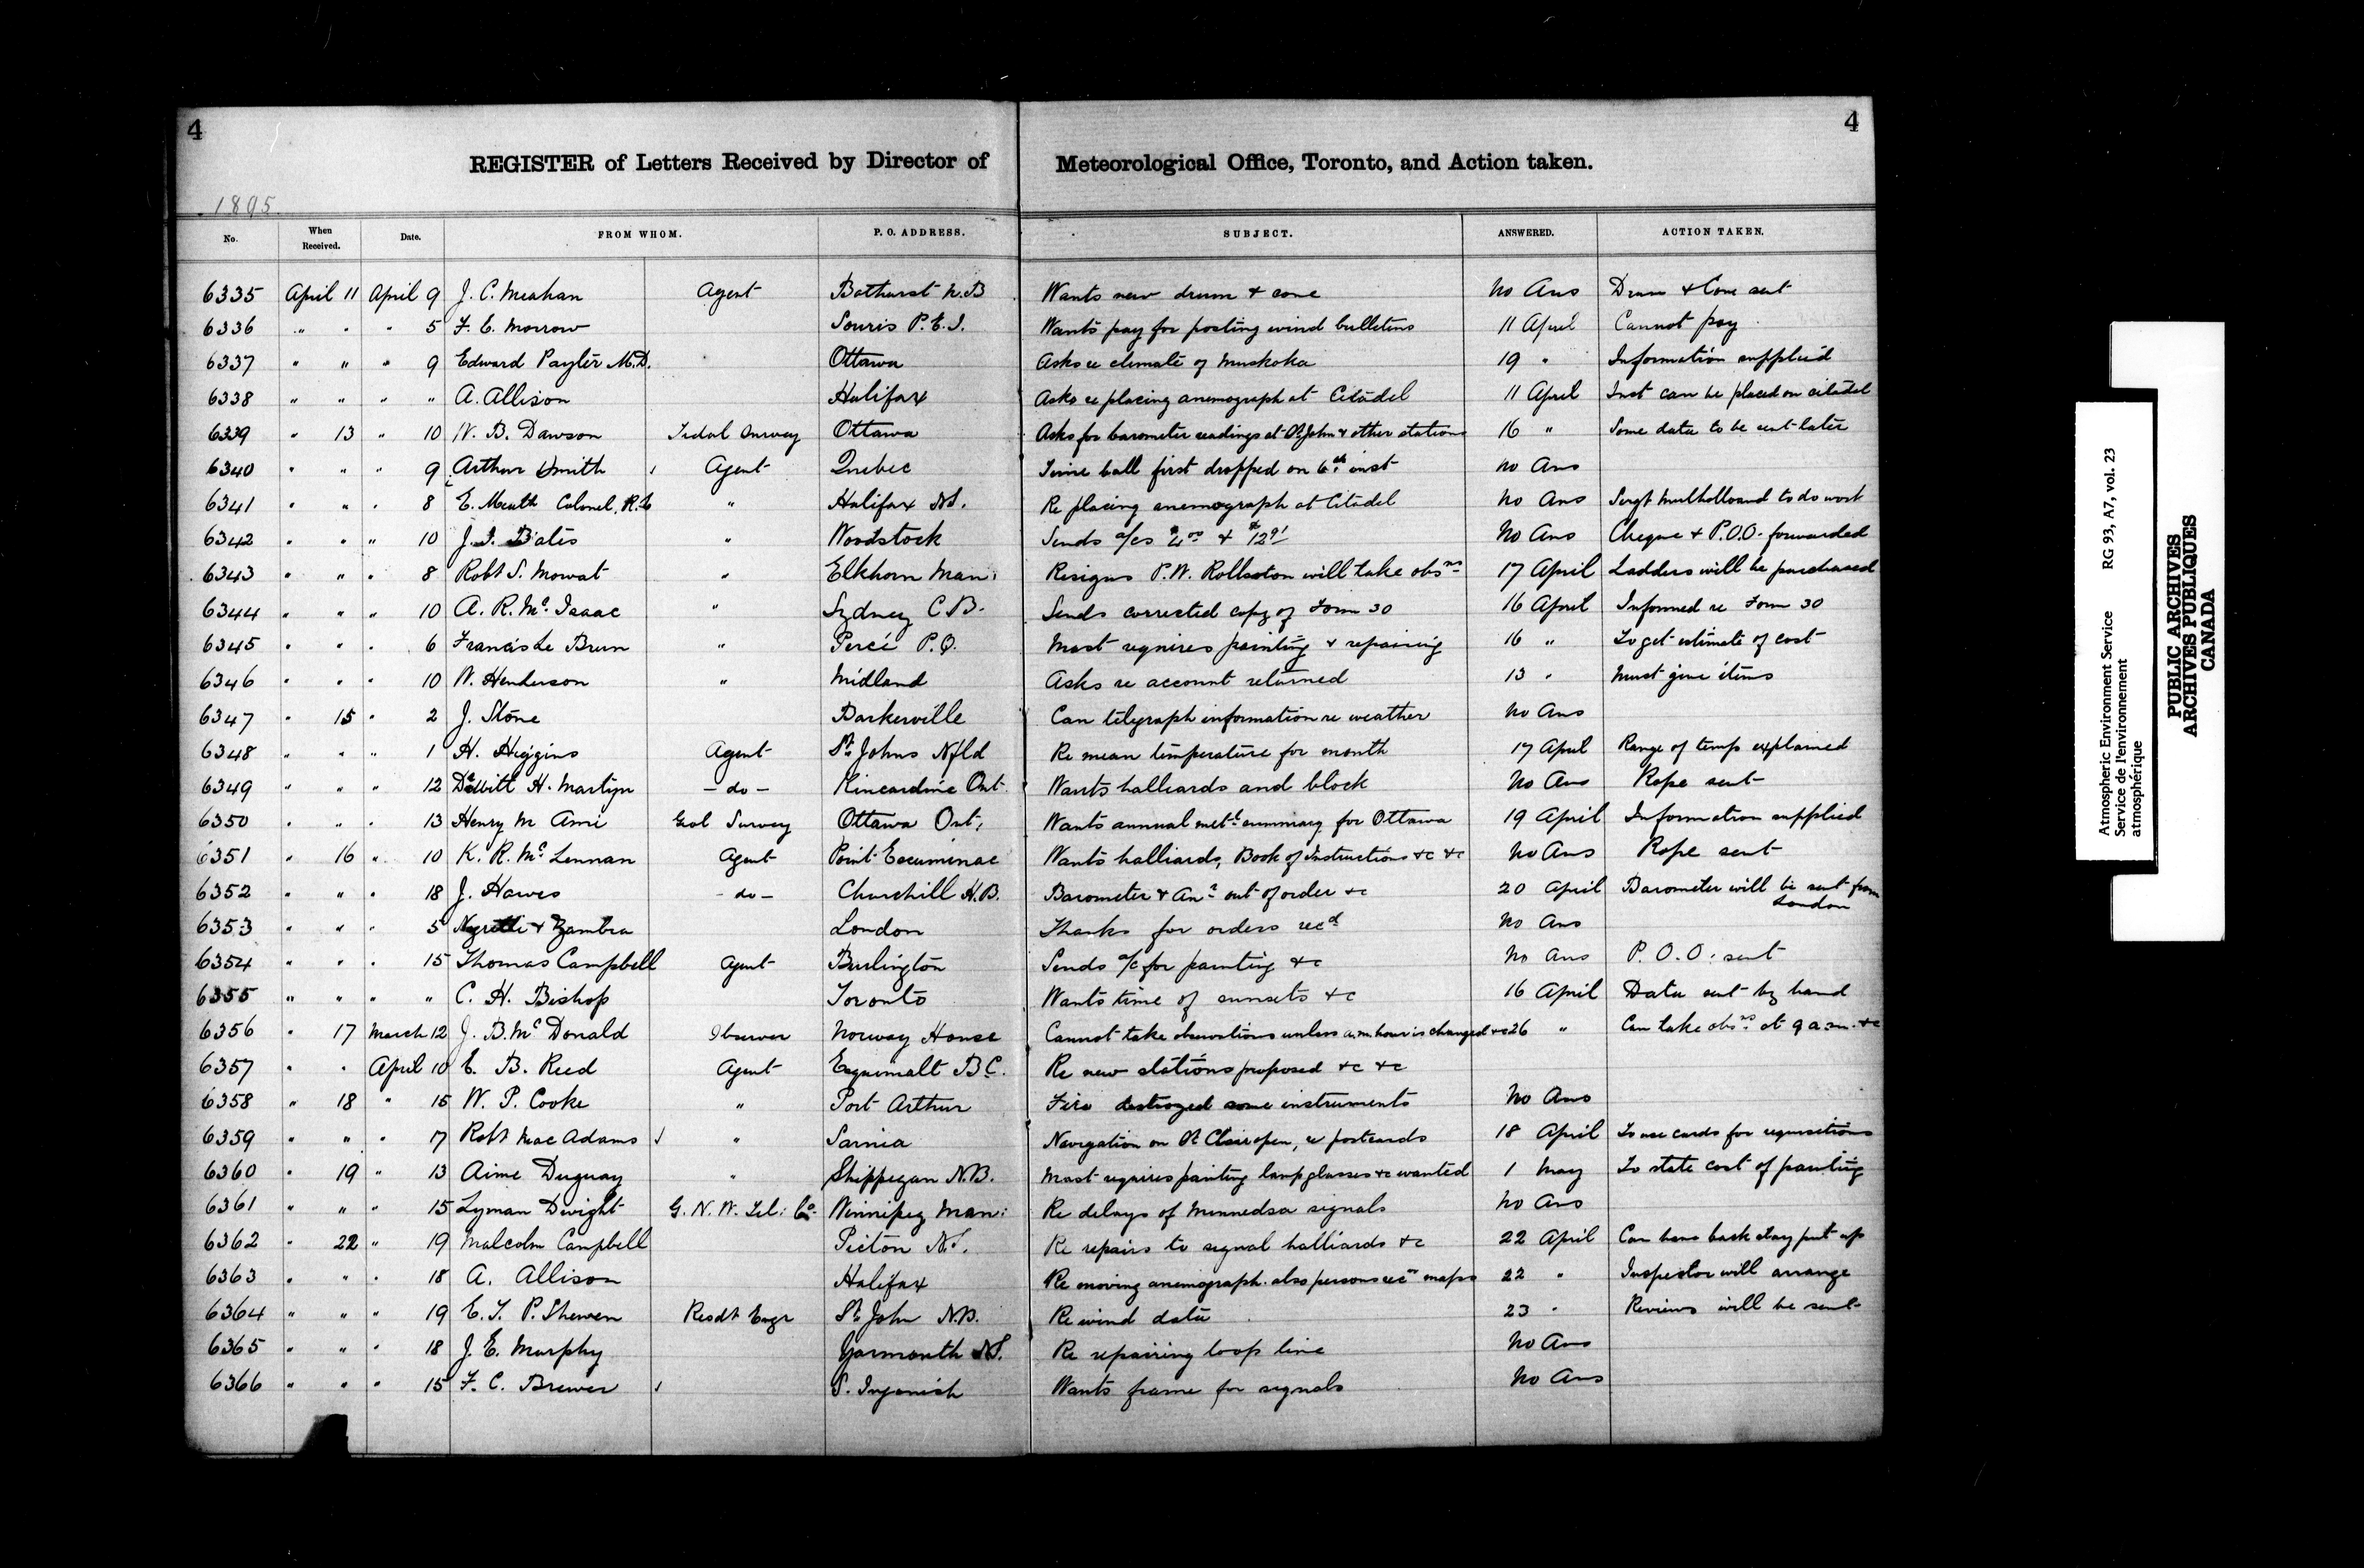 4
4
REGISTER of Letters Received by Director of Meteorological Office, Toronto, and Action taken.
1895.
No. When Received. Date. FROM WHOM. P. O. ADDRESS. SUBJECT. ANSWERED. ACTION TAKEN.
6335 April 11 April 9 J. C. Meahan Agent Bathurst N.B Wants new drum & cone No Ans Drum & Cone sent
6336 " " " 5 F. E. Morrow Souris P.E.I. Wants pay for posting wind bulletins 11 April Cannot pay
6337 " " " 9 Edward Paylér M.D. Ottawa Asks re climate of Muskoka 19 " Information supplied
6338 " " " " A. Allison Halifax Asks re placing anemograph at Citadel 11 April Inst can be placed on citadel
6339 " 13 " 10 W. B. Dawson Tidal Survey Ottawa Asks for barometer readings at St John & other stations 16 " Some data to be sent later
6340 " " " 9 Arthur Smith Agent Quebec Time ball first dropped on 6th inst No Ans
6341 " " " 8 E. Colonel, R.E " Halifax N.S. Re placing anemograph at Citadel No Ans Sergt to do work
6342 " " " 10 J. I. Bates " Woodstock Sends a/cs & No Ans Cheque & P.O.O. forwarded
6343 " " " 8 Robt S. Mowat " Elkhorn Man: Resigns P.W. Rollston will take obsns 17 April Ladders will be purchased
6344 " " " 10 A. R. Mc Isaac " Sydney C.B. Sends corrected copy of Form 30 16 April Informed re Form 30
6345 " " " 6 Francis Le Brun " Percé P.Q. Mast requires painting & repairing 16 " To get estimate of cost
6346 " " " 10 W. Henderson " Midland Asks re account returned 13 " Must give items
6347 " 15 " 2 J. Stone Barkerville Can telegraph information re weather No Ans
6348 " " " 1 H. Higgins Agent St Johns Nfld Re mean temperature for month 17 April Range of temp explained
6349 " " " 12 DeWitt H. Martyn - do - Kincardine Ont. Wants halliards and block No Ans Rope sent
6350 " " " 13 Henry M Ami Geol Survey Ottawa Ont. Wants annual metl summary for Ottawa 19 April Information supplied
6351 " 16 " 10 K. R. Mc Lennan Agent Point Escuminac Wants halliards, Book of Instructions &c &c No Ans Rope sent
6352 " " " 18 J. Hawes - do - Churchill H.B. Barometer & Anr out of order &c 20 April Barometer will be sent from
London
6353 " " " 5 Negretti & Zambra London Thanks for orders recd No Ans
6354 " " " 15 Thomas Campbell Agent Burlington Sends a/c for painting &c No Ans P. O. O. sent
6355 " " " " C. H. Bishop Toronto Wants time of sunsets &c 16 April Data sent by hand
6356 " 17 March 12 J. B. Mc Donald Observer Norway House Cannot take observations unless a.m hour is changed &c 26 " Can take obsns at 9 a.m. &c
6357 " " April 10 E. B. Reed Agent Esquimalt B.C. Re new stations proposed &c &c
6358 " 18 " 15 W. P. Cooke " Port Arthur Fire destroyed some instruments No Ans
6359 " " " 17 Robt Mac Adams " Sarnia Navigation on St Clair open, re postcards 18 April To use cards for requisitions
6360 " 19 " 13 Aime Duguay " Shippegan N.B. Mast requires painting lamp glasses &c wanted 1 May To state cost of painting
6361 " " " 15 Lyman Dwight G. N. W. Tel: Co. Winnipeg Man: Re delays of Minnedsa signals No Ans
6362 " 22 " 19 Malcolm Campbell Pictou N.S. Re repairs to signal halliards &c 22 April Can have back stay put up
6363 " " " 18 A. Allison Halifax Re moving anemograph. also persons maps 22 " Inspector will arrange
6364 " " " 19 E. T. P. Shewen Resdt Engr St John N.B. Re wind data 23 " Reviews will be sent
6365 " " " 18 J. E. Murphy Yarmouth N.S. Re repairing loop line No Ans
6366 " " " 15 F. C. Brewer S. Ingonish Wants frame for signals No Ans
Atmospheric Environment Service RG 93, A7, vol. 23
Service de l'environnement
atmosphérique
PUBLIC ARCHIVES
ARCHIVES PUBLIQUES
CANADA